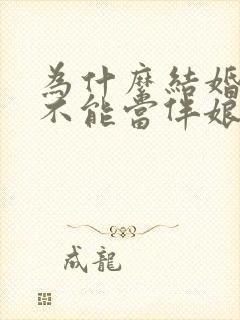 為什麼結婚
不能當伴娘
成龍